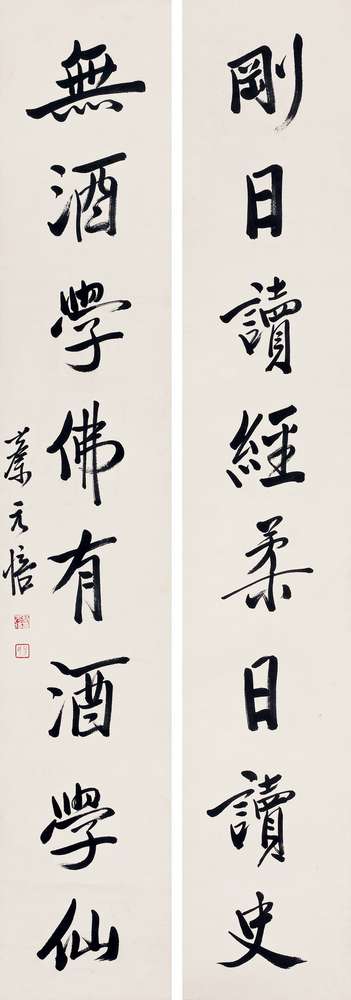 剛日讀經柔日讀史
無酒學佛有酒學仙
蔡元培